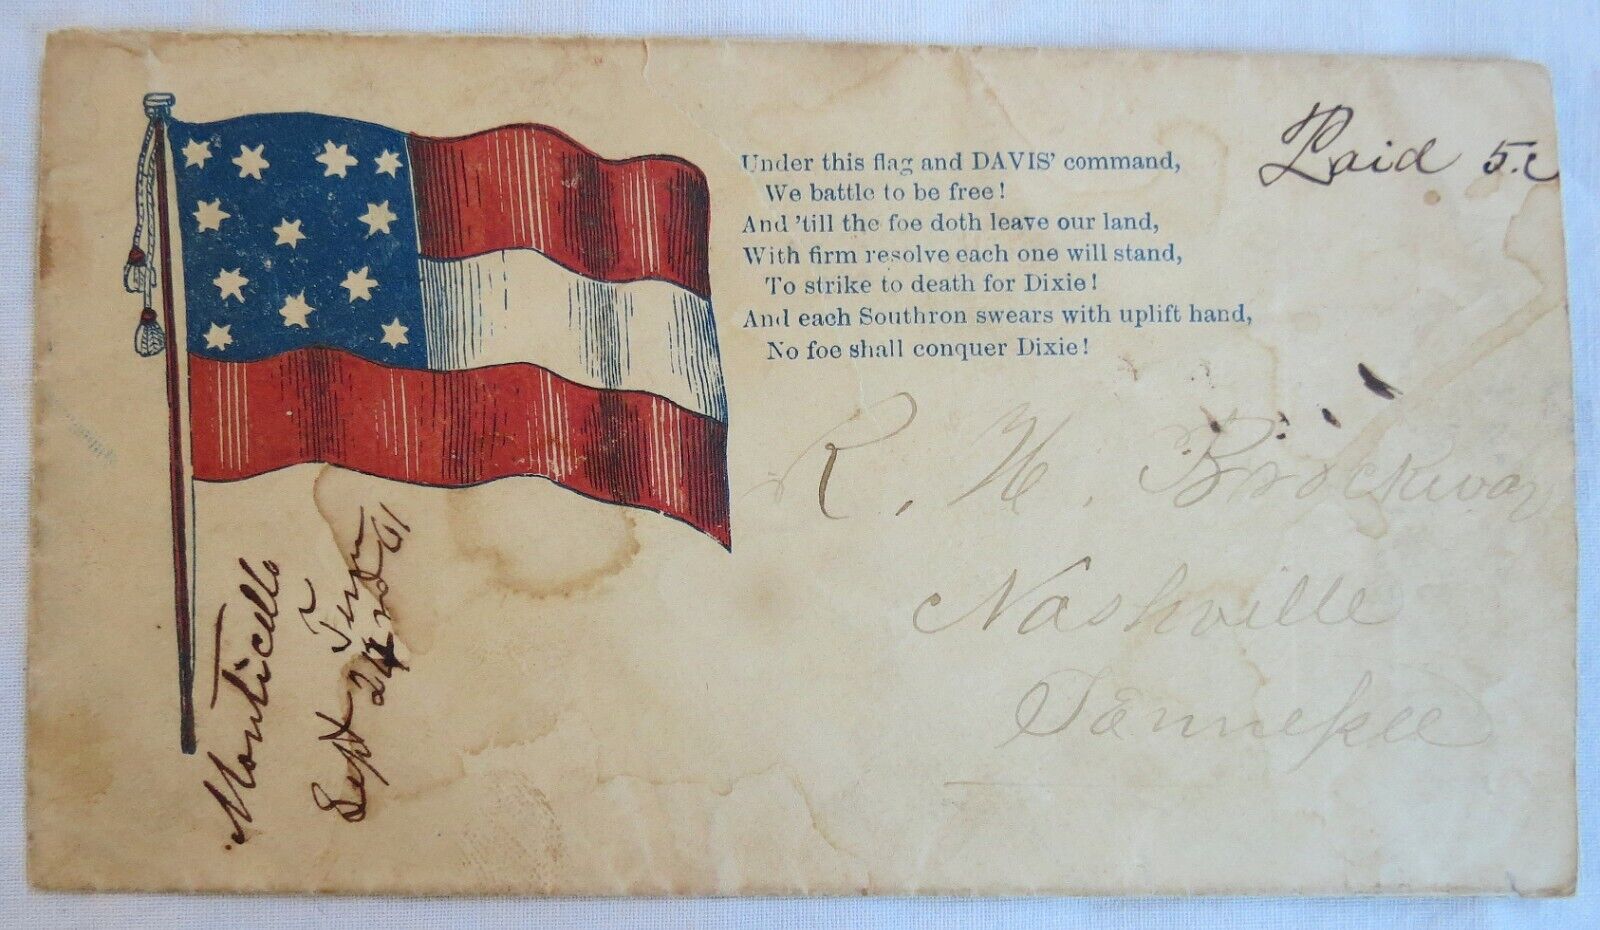 Under this flag and DAVIS' command,
We battle to be free!
And 'till the foe doth leave our land,
With firm resolve each one will stand,
To strike to death for Dixie!
And each Southron swears with uplift hand,
No foe shall conquer Dixie!
Paid 5.c
R. H. Brockway
Nashville
Tennessee
Monticello
Tenn
Sept 24 61